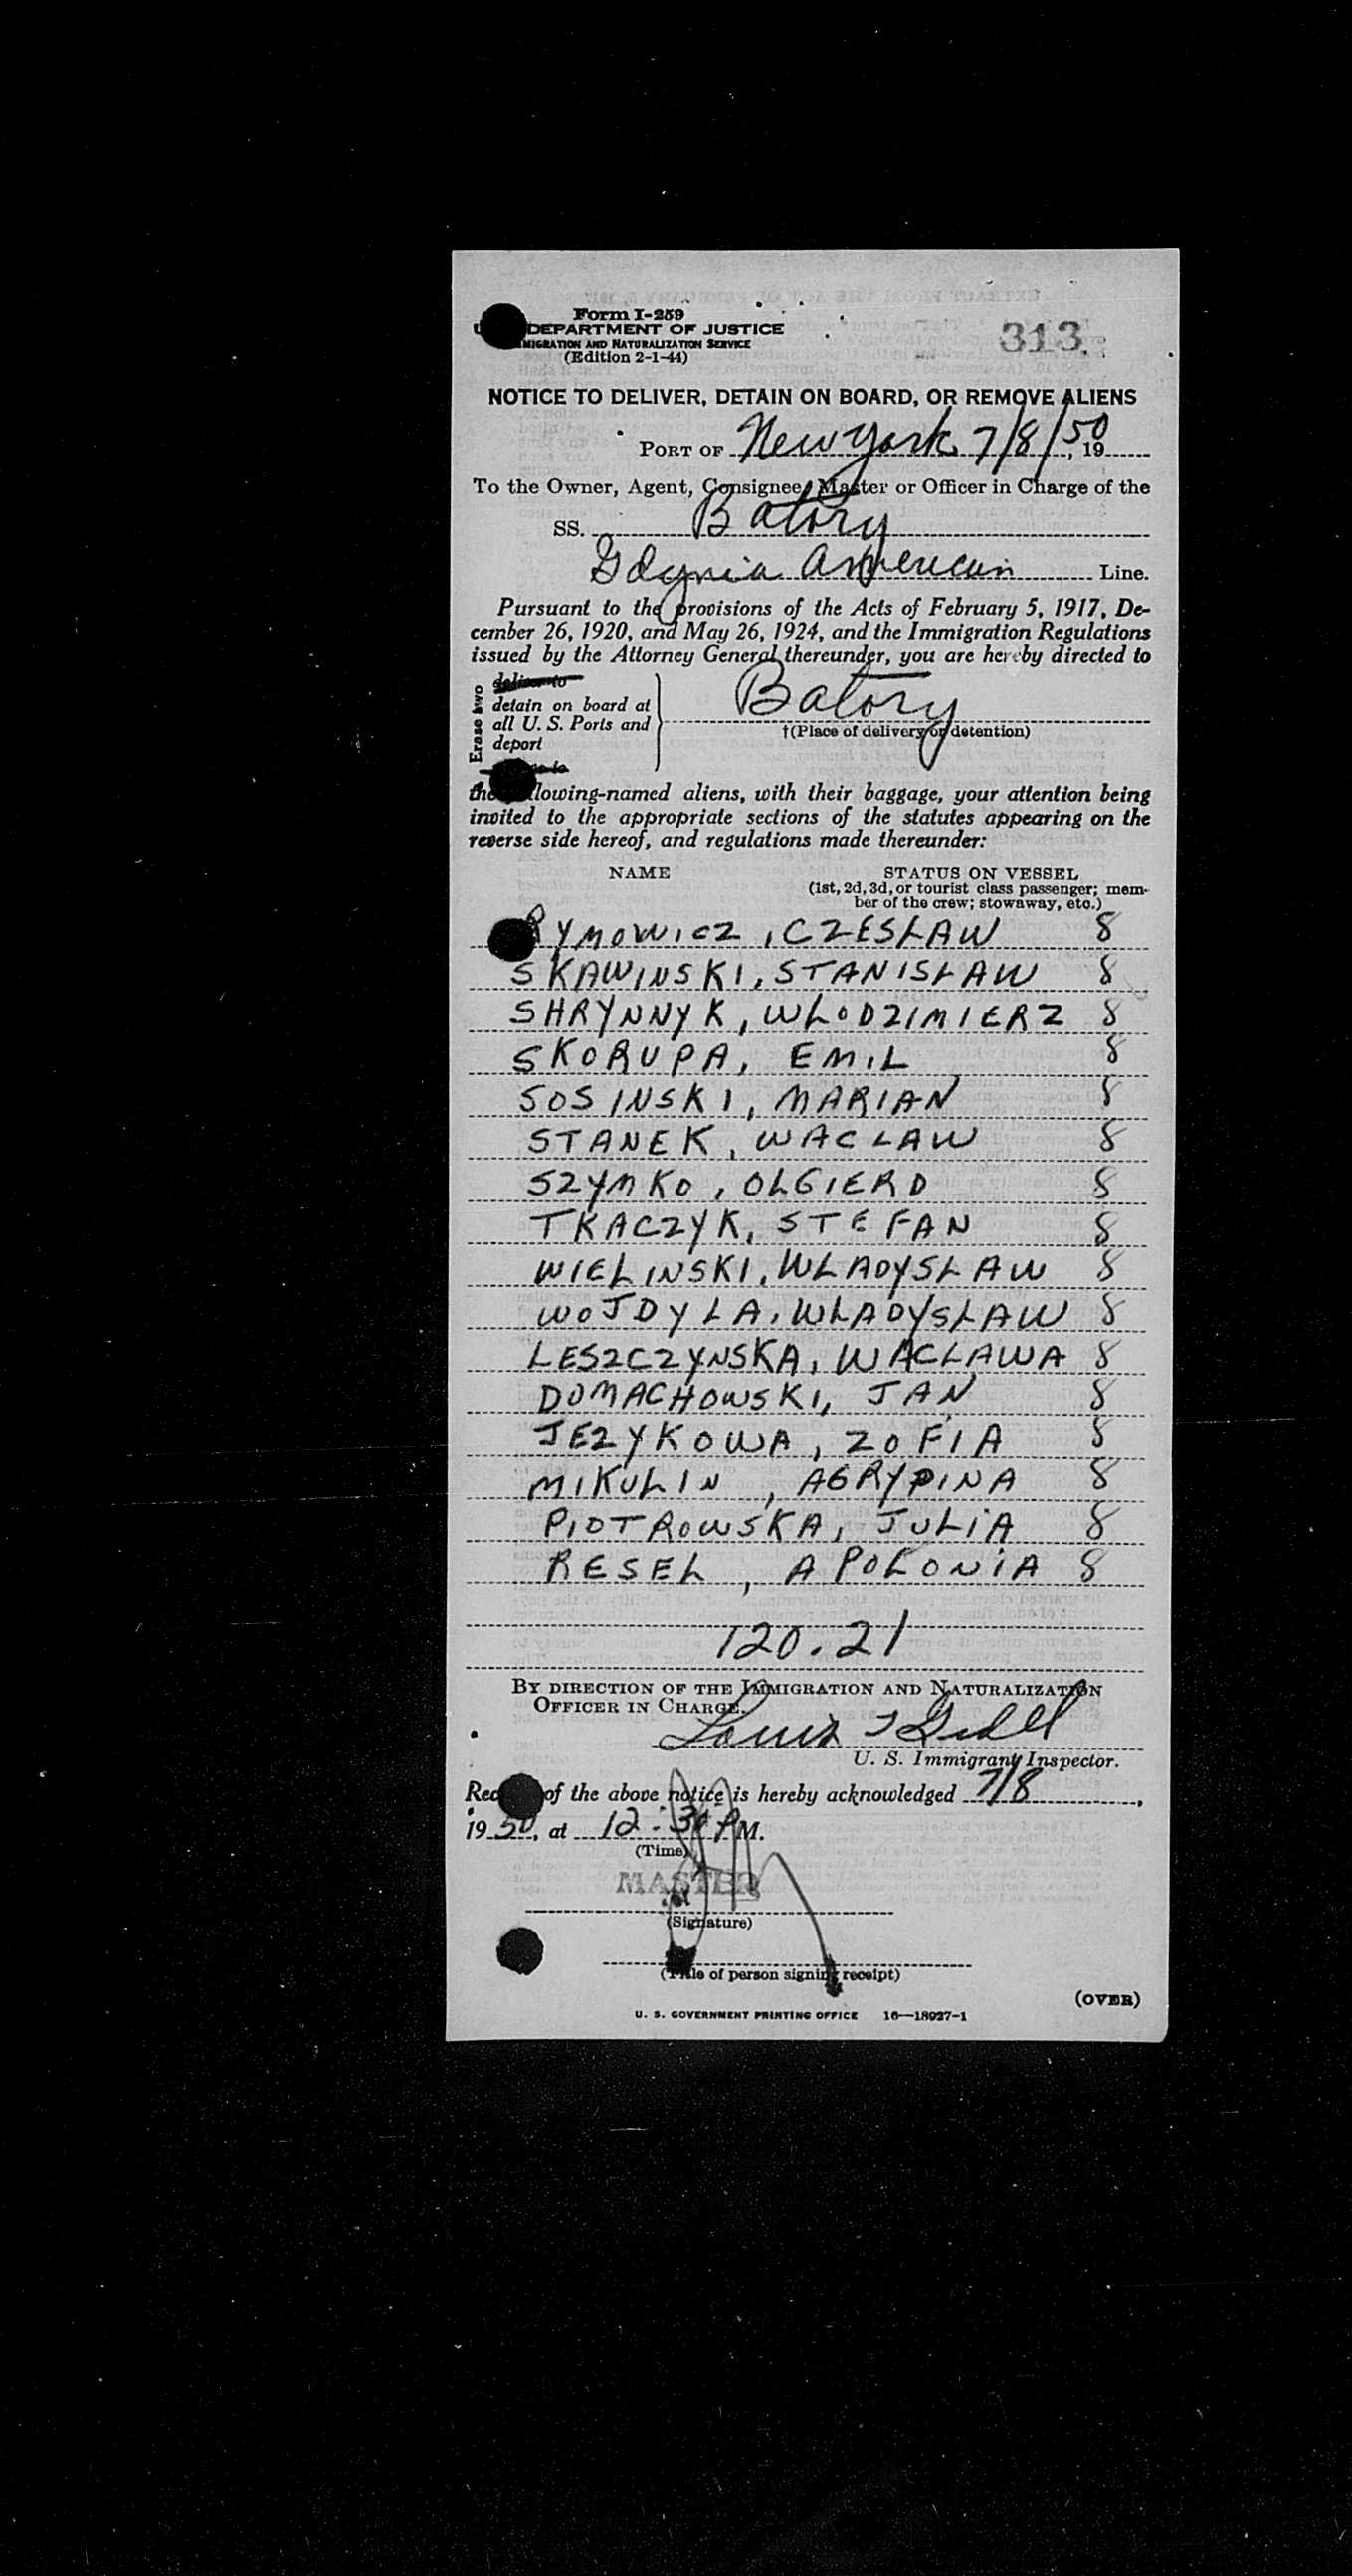 Form I-259
DEPARTMENT OF JUSTICE
MIGRATION AND NATURALIZATION SERVICE
(Edition 2-1-44)
313
NOTICE TO DELIVER, DETAIN ON BOARD, OR REMOVE ALIENS
PORT OF New York 7/8/50, 19
To the Owner, Agent, Consignee, Master or Officer in Charge of the
SS. Batory
Gdynia American Line.
Pursuant to the provisions of the Acts of February 5, 1917, De-
cember 26, 1920, and May 26, 1924, and the Immigration Regulations
issued by the Attorney General thereunder, you are hereby directed to
Erase two
deliver to
detain on board at
all U. S. Ports and
deport
Batory
†(Place of delivery or detention)
the lowing-named aliens, with their baggage, your attention being
invited to the appropriate sections of the statutes appearing on the
reverse side hereof, and regulations made thereunder:
NAME STATUS ON VESSEL
(1st, 2d, 3d, or tourist class passenger; mem-
ber of the crew; stowaway, etc.)
RYMOWICZ, CZESŁAW 8
SKAWINSKI, STANISŁAW 8
SHRYNNYK, WŁODZIMIERZ 8
SKORUPA, EMIL 8
SOSINSKI, MARIAN 8
STANEK, WACLAW 8
SZYMKO, OLGIERD 8
TKACZYK, STEFAN 8
WIELINSKI, WLADYSŁAW 8
WOJDYLA, WLADYSŁAW 8
LESZCZYNSKA, WACLAWA 8
DOMACHOWSKI, JAN 8
JEZYKOWA, ZOFIA 8
MIKULIN, AGRYPINA 8
PIOTROWSKA, JULIA 8
RESEL, APOLONIA 8
120.21
BY DIRECTION OF THE IMMIGRATION AND NATURALIZATION
OFFICER IN CHARGE.
Louis
U. S. Immigrant Inspector.
Rec of the above notice is hereby acknowledged 7/8,
1950, at 12:30 P M.
(Time)
MASTER
(Signature)
(Title of person signing receipt)
(OVER)
U. S. GOVERNMENT PRINTING OFFICE 16—18927-1